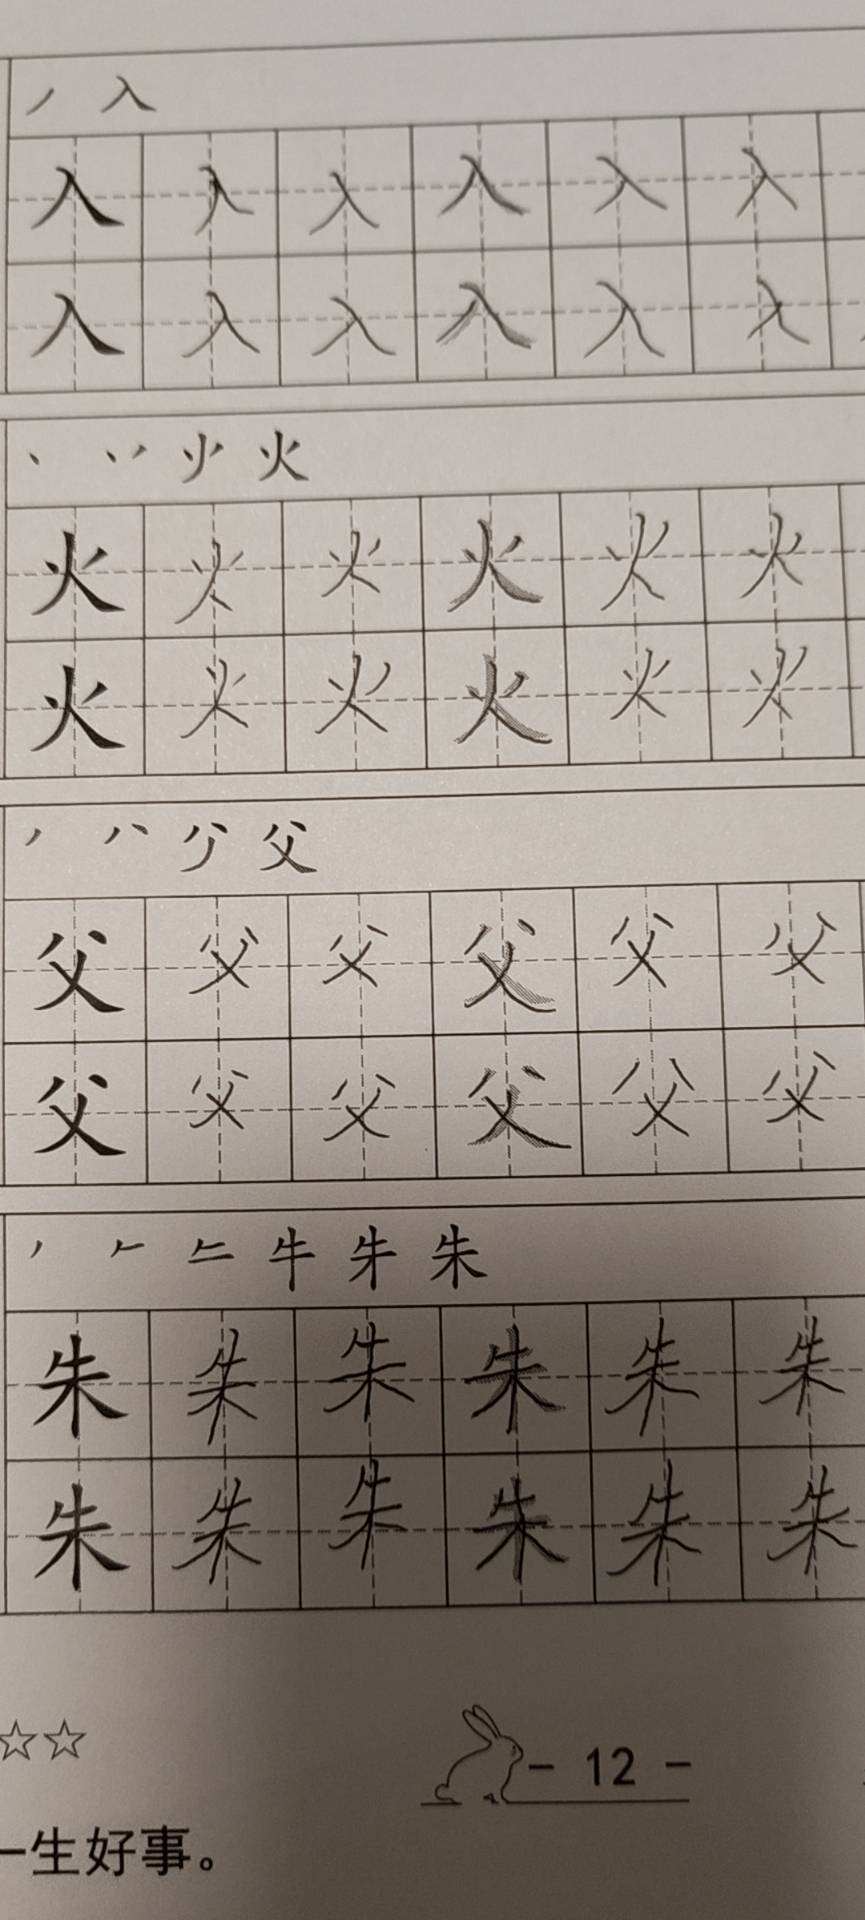 丿 入
入 入 入 入 入 入
入 入 入 入 入 入
丶 丷 火
火 火 火 火 火 火
火 火 火 火 火 火
丿 八 父
父 父 父 父 父 父
父 父 父 父 父 父
丿 𠂉 牛 朱
朱 朱 朱 朱 朱 朱
朱 朱 朱 朱 朱 朱
☆☆
- 12 -
一生好事。